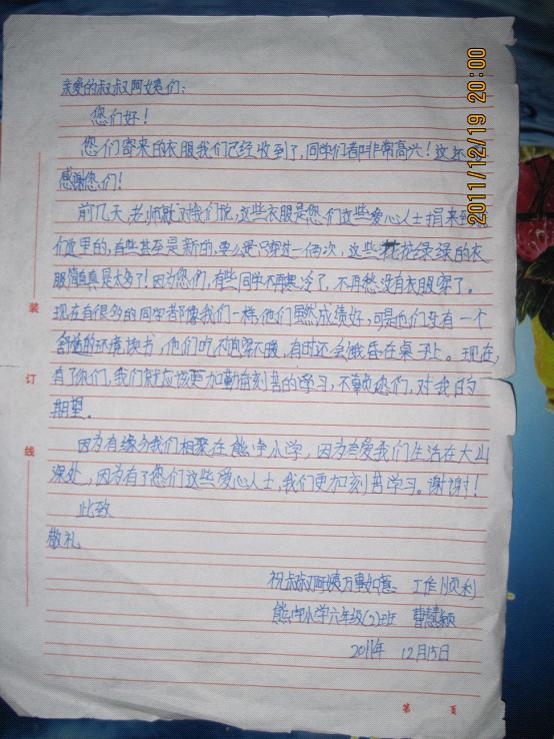 亲爱的叔叔阿姨们:
您们好!
您们寄来的衣服我们已经收到了,同学们都非常高兴!这
感谢您们!
前几天,老师就对我们说,这些衣服是您们这些爱心人士捐来
们这里的,有些甚至是新的,要么是只穿过一俩次,这些花花绿绿的衣
服简直真是太多了!因为您们,有些同学不再寒冷了,不再愁没有衣服穿了。
现在有很多的同学都像我们一样,他们虽然成绩好,可是他们没有一个
舒适的环境读书,他们吃不饱穿不暖,有时还会饿昏在桌子上。现在,
有了你们,我们就应该更加勤奋刻苦的学习,不辜负您们,对我的
期望。
因为有缘分我们相聚在熊冲小学,因为有爱我们生活在大山
深处,因为有了您们这些爱心人士,我们更加刻苦学习。谢谢!
此致
敬礼
祝叔叔阿姨万事如意: 工作顺利
熊冲小学六年级(2)班 曹慧颖
2011年 12月15日
装
订
线
第 页
2011/12/19 20:00